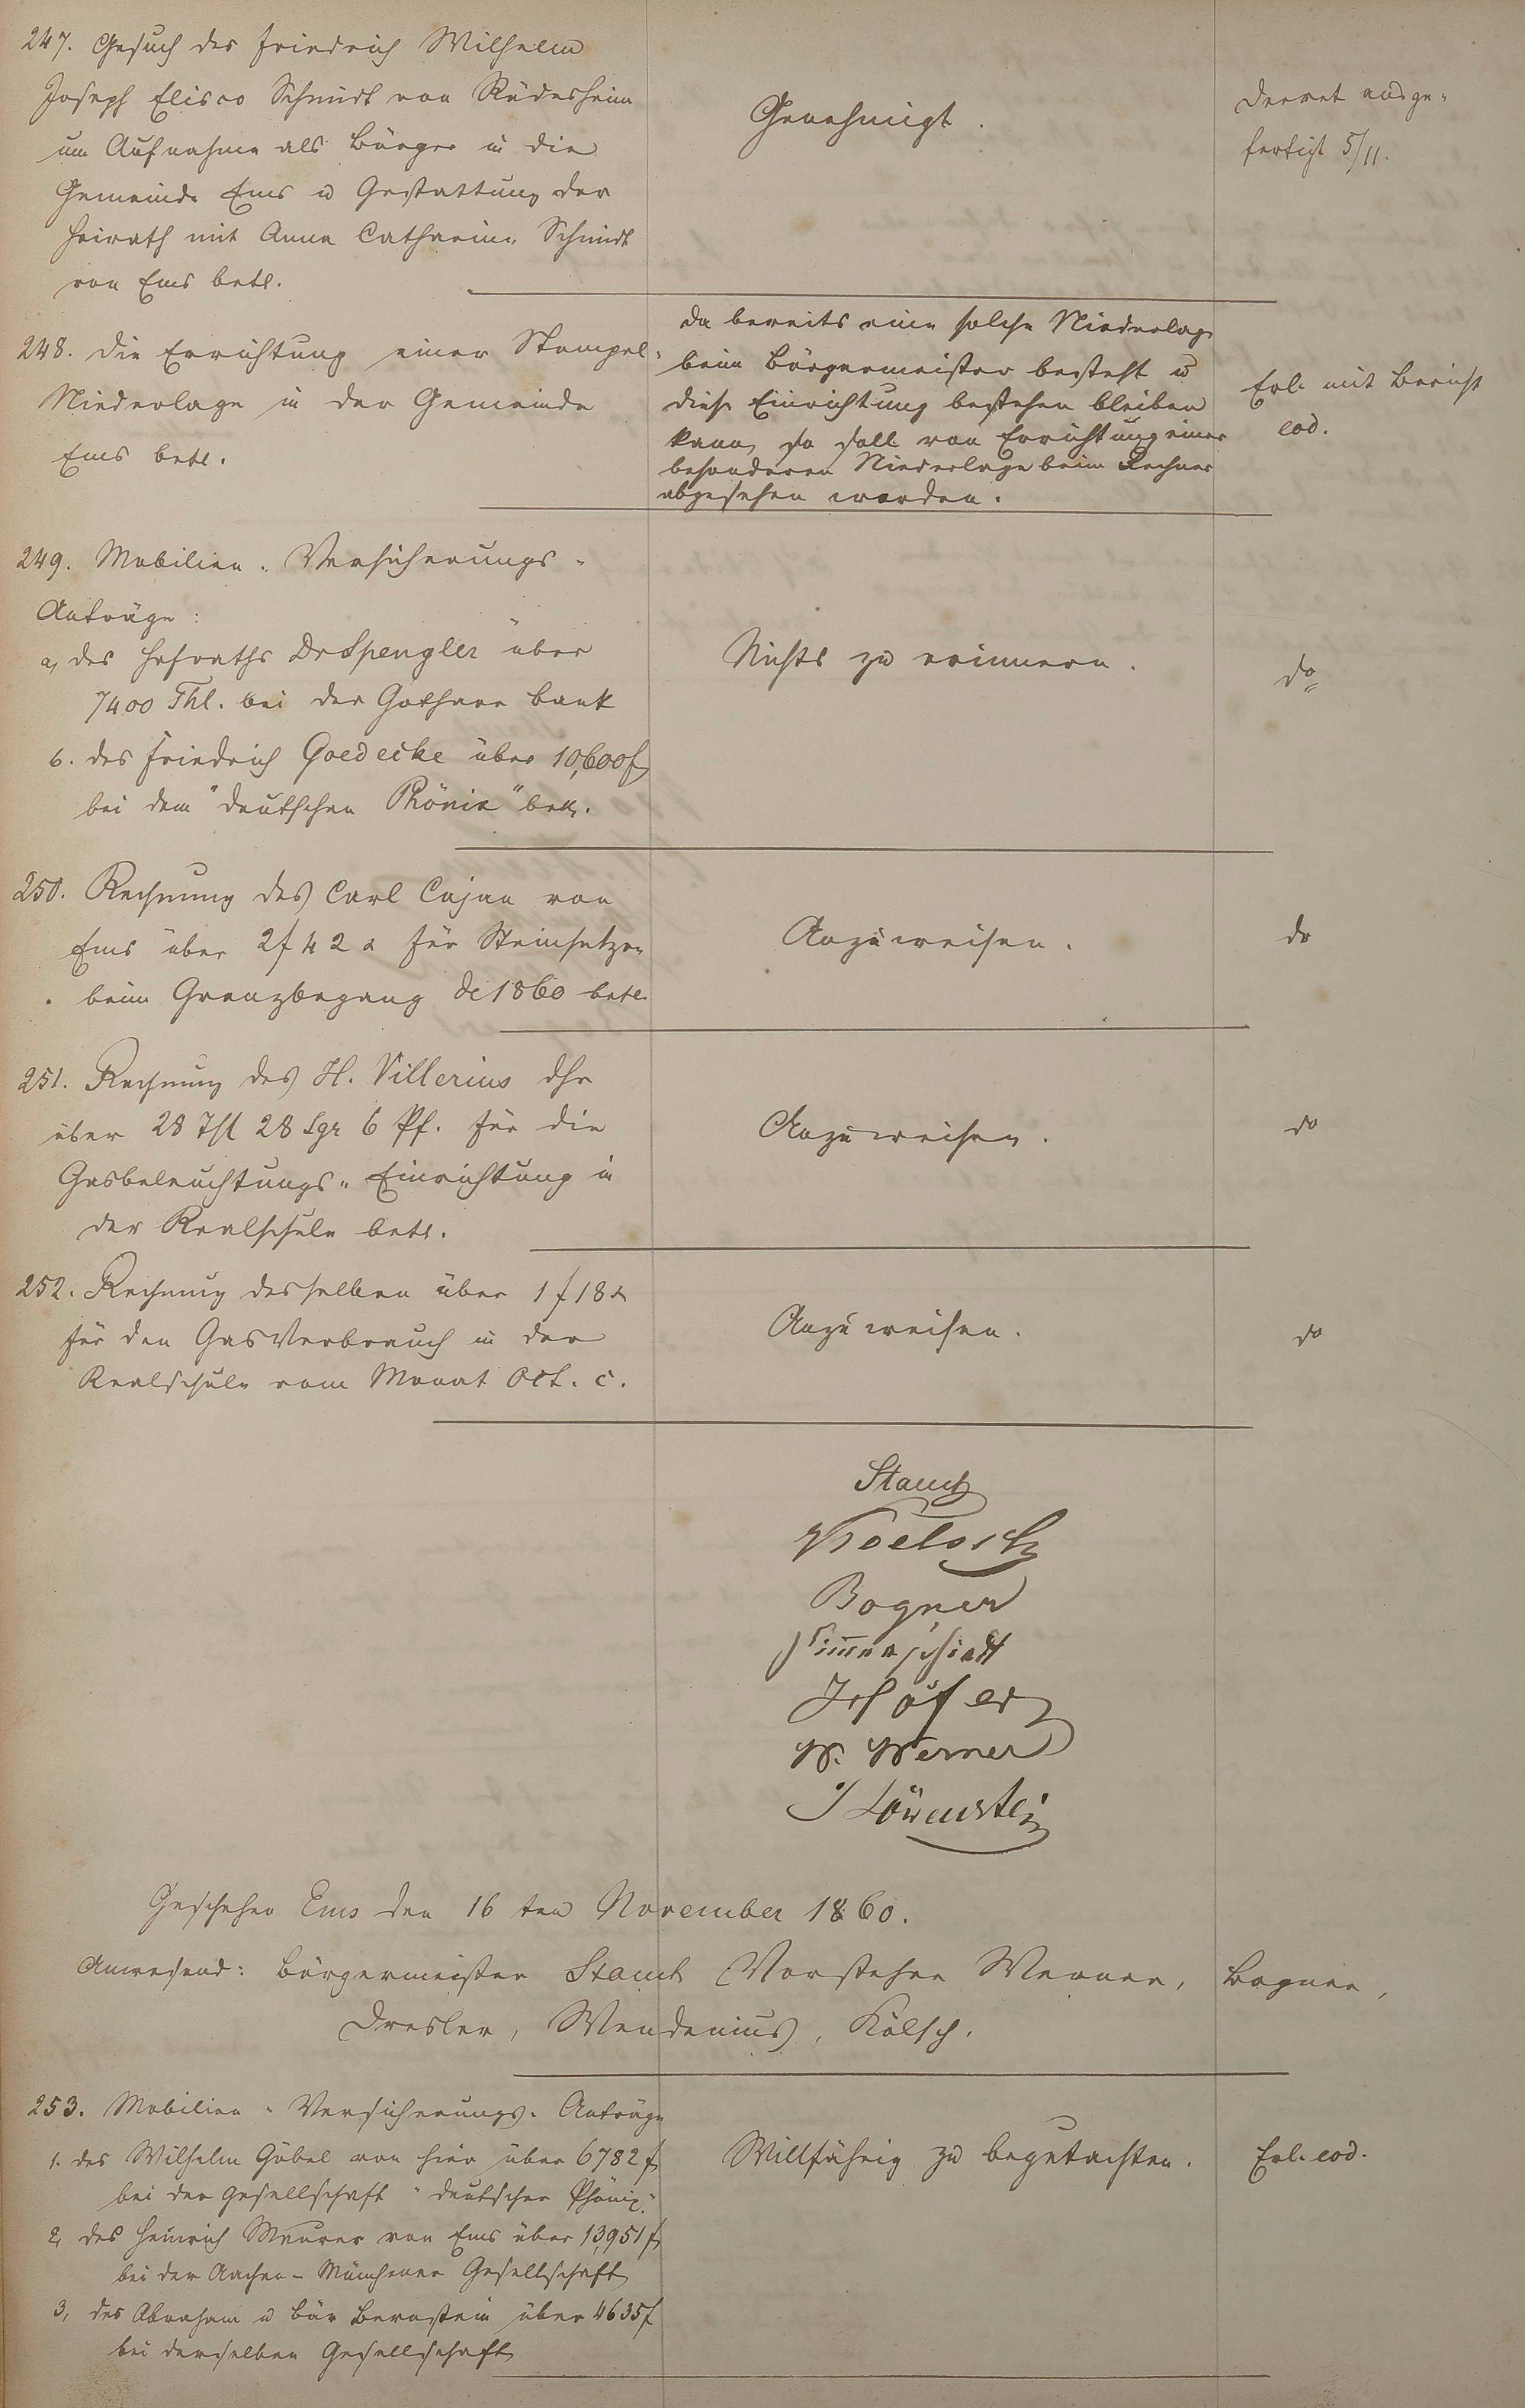 247. Gesuch des Friedrich Wilhelm
Joseph Elisco Schmidt von Rüdesheim
um Aufnahme als Bürger in die
Gemeinde Ems u Gestattung der
Heirath mit Anna Catharina Schmidt
von Ems betr.
Genehmigt.
Decret ausge-
fertigt 5/11.
248. Die Errichtung einer Stempel-
Niederlage in der Gemeinde
Ems betr.
Da bereits eine solche Niederlage
beim Bürgermeister besteht u
diese Einrichtung bestehen bleiben
kann, so soll von Errichtung einer
besonderen Niederlage beim Rechner
abgesehen werden.
Erl. mit Bericht
eod.
249. Mobilien-Versicherungs-
Anträge:
a, des Hofraths Dr Spengler über
7400 Thl. bei der Gothaer Bank
b. des Friedrich Goedecke über 10,600 f
bei dem "Deutschen Phönix" betr.
Nichts zu erinnern.
do
250. Rechnung des Carl Cajan von
Ems über 2 f 42 x für Steinsetzen
beim Grenzbegang de 1860 betr.
Anzuweisen.
do
251. Rechnung des H. Villerius dhr
über 28 Thl 28 Sgr 6 Pf. für die
Gasbeleuchtungs-Einrichtung in
der Realschule betr.
Anzuweisen.
do
252. Rechnung desselben über 1 f 18 x
für den GasVerbrauch in der
Realschule vom Monat Oct. c.
Anzuweisen.
do
Stamb
Koelsch
Bogner
Jhöfer
W. Werner
J Löwenstein
Geschehen Ems den 16ten November 1860.
Anwesend: Bürgermeister Stamb Vorsteher Werner, Bogner,
Dresler, Wendenius, Kölsch.
253. Mobilien-Versicherungs-Anträge
1. des Wilhelm Göbel von hier über 6782 f
bei der Gesellschaft "deutscher Phönix"
2, des Heinrich Maurer von Ems über 13,951 f
bei der Aachen-Münchener Gesellschaft
3, des Abraham u Bär Bernstein über 4635 f
bei derselben Gesellschaft
Willfährig zu begutachten.
Erl. eod.